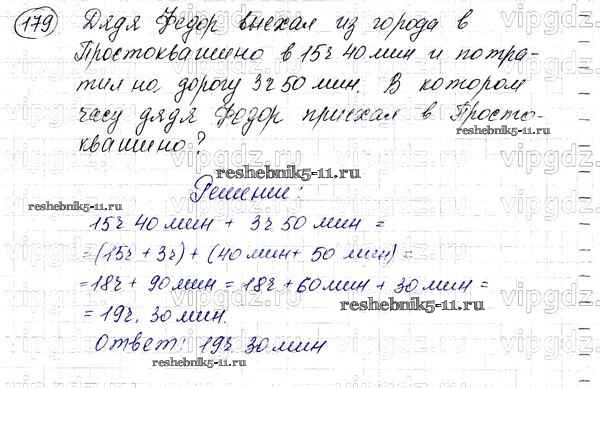 179 Дядя Федор выехал из города в
Простоквашино в 15ч 40 мин и потра-
тил на дорогу 3ч 50 мин. В котором
часу дядя Федор приехал в Просто-
reshebnik5-11.ru
квашино?
reshebnik5-11.ru
Решение:
reshebnik5-11.ru
15ч 40 мин + 3ч 50 мин =
=(15ч + 3ч) + (40 мин + 50 мин) =
=18ч + 90 мин = 18ч + 60 мин + 30 мин =
reshebnik5-11.ru
= 19ч. 30 мин.
Ответ: 19ч 30 мин
reshebnik5-11.ru